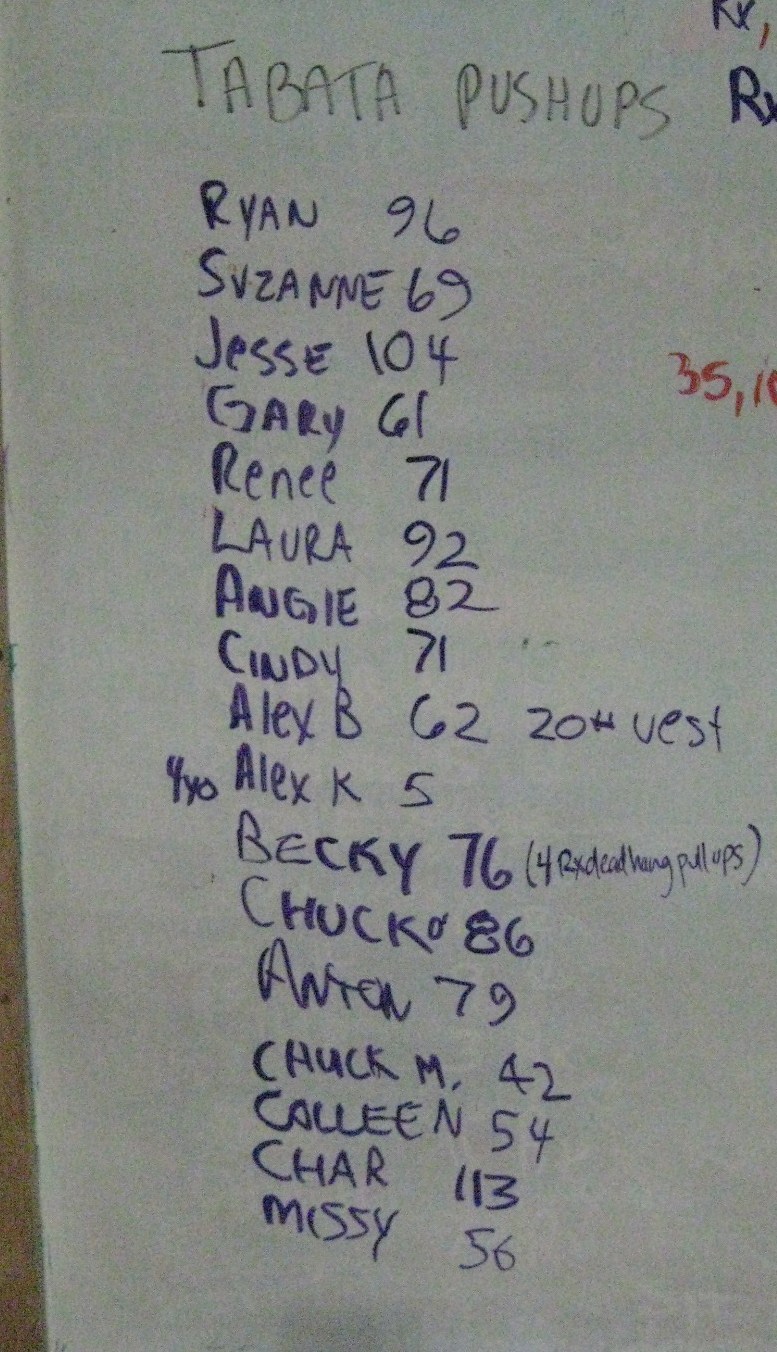 Rx,
TABATA PUSHUPS Rx
RYAN 96
SUZANNE 69
Jesse 104
35, 10
GARY 61
Renee 71
LAURA 92
ANGIE 82
CINDY 71
Alex B 62 20# vest
4yo Alex K 5
BECKY 76 (4 Rx deadhang pullups)
CHUCK 86
ANTON 79
CHUCK M. 42
COLLEEN 54
CHAR 113
MISSY 56